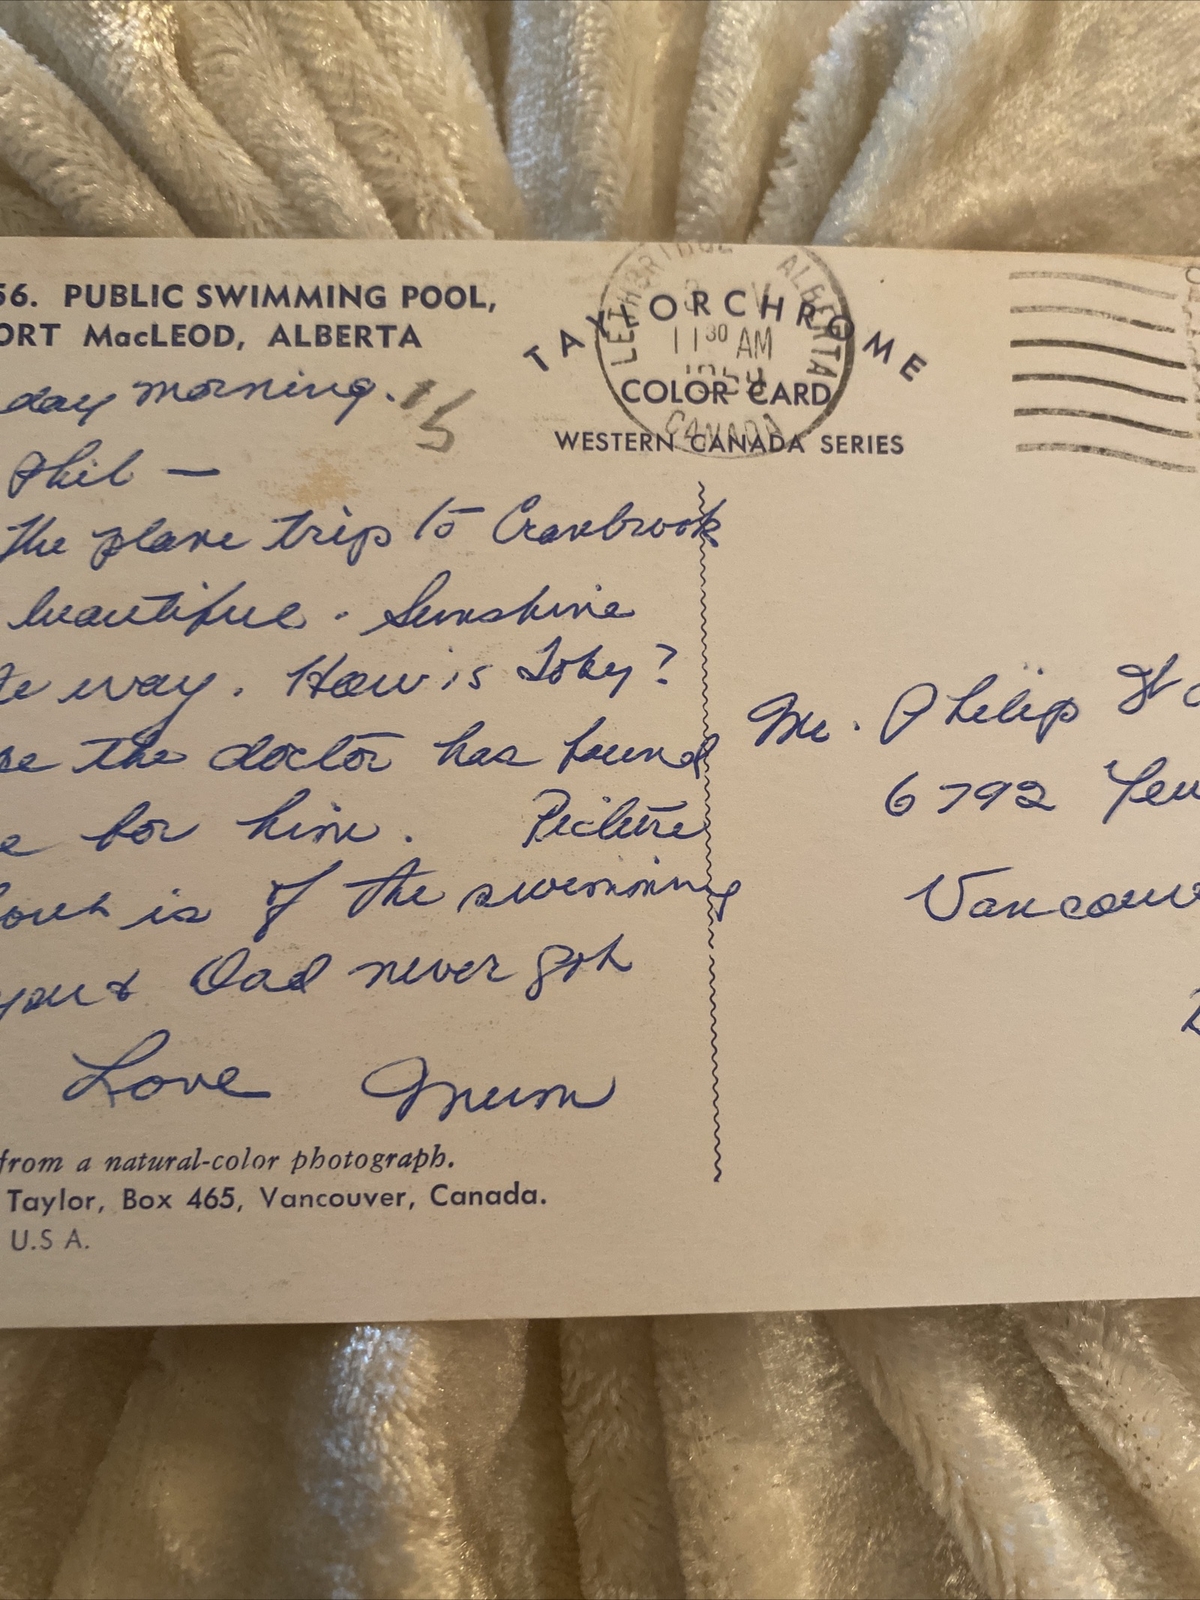 56. PUBLIC SWIMMING POOL,
ORT MacLEOD, ALBERTA
TAYLORCHROME
COLOR CARD
WESTERN CANADA SERIES
LETHBRIDGE ALBERTA
11 30 AM
CANADA
day morning.
15
Phil —
The plane trip to Cranbrook
beautiful. Sunshine
te way. How is Toby?
pe the doctor has found
e for him. Picture
is of the swimming
you & Dad never got
Love Mum
Mr. Philip St
6792
Vancouv
from a natural-color photograph.
Taylor, Box 465, Vancouver, Canada.
U.S A.